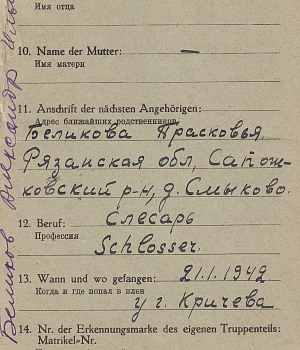 Имя отца
10. Name der Mutter: —
Имя матери
11. Anschrift der nächsten Angehörigen:
Адрес ближайших родственников
Беликова Прасковья
Рязанская обл, Сапож-
ковский р-н, д. Смыково.
12. Beruf: Слесарь
Профессия
Schlosser.
13. Wann und wo gefangen: 21.1.1942
Когда и где попал в плен
у г. Кричева
14. Nr. der Erkennungsmarke des eigenen Truppenteils:
Matrikel-Nr.
Беликов Александр